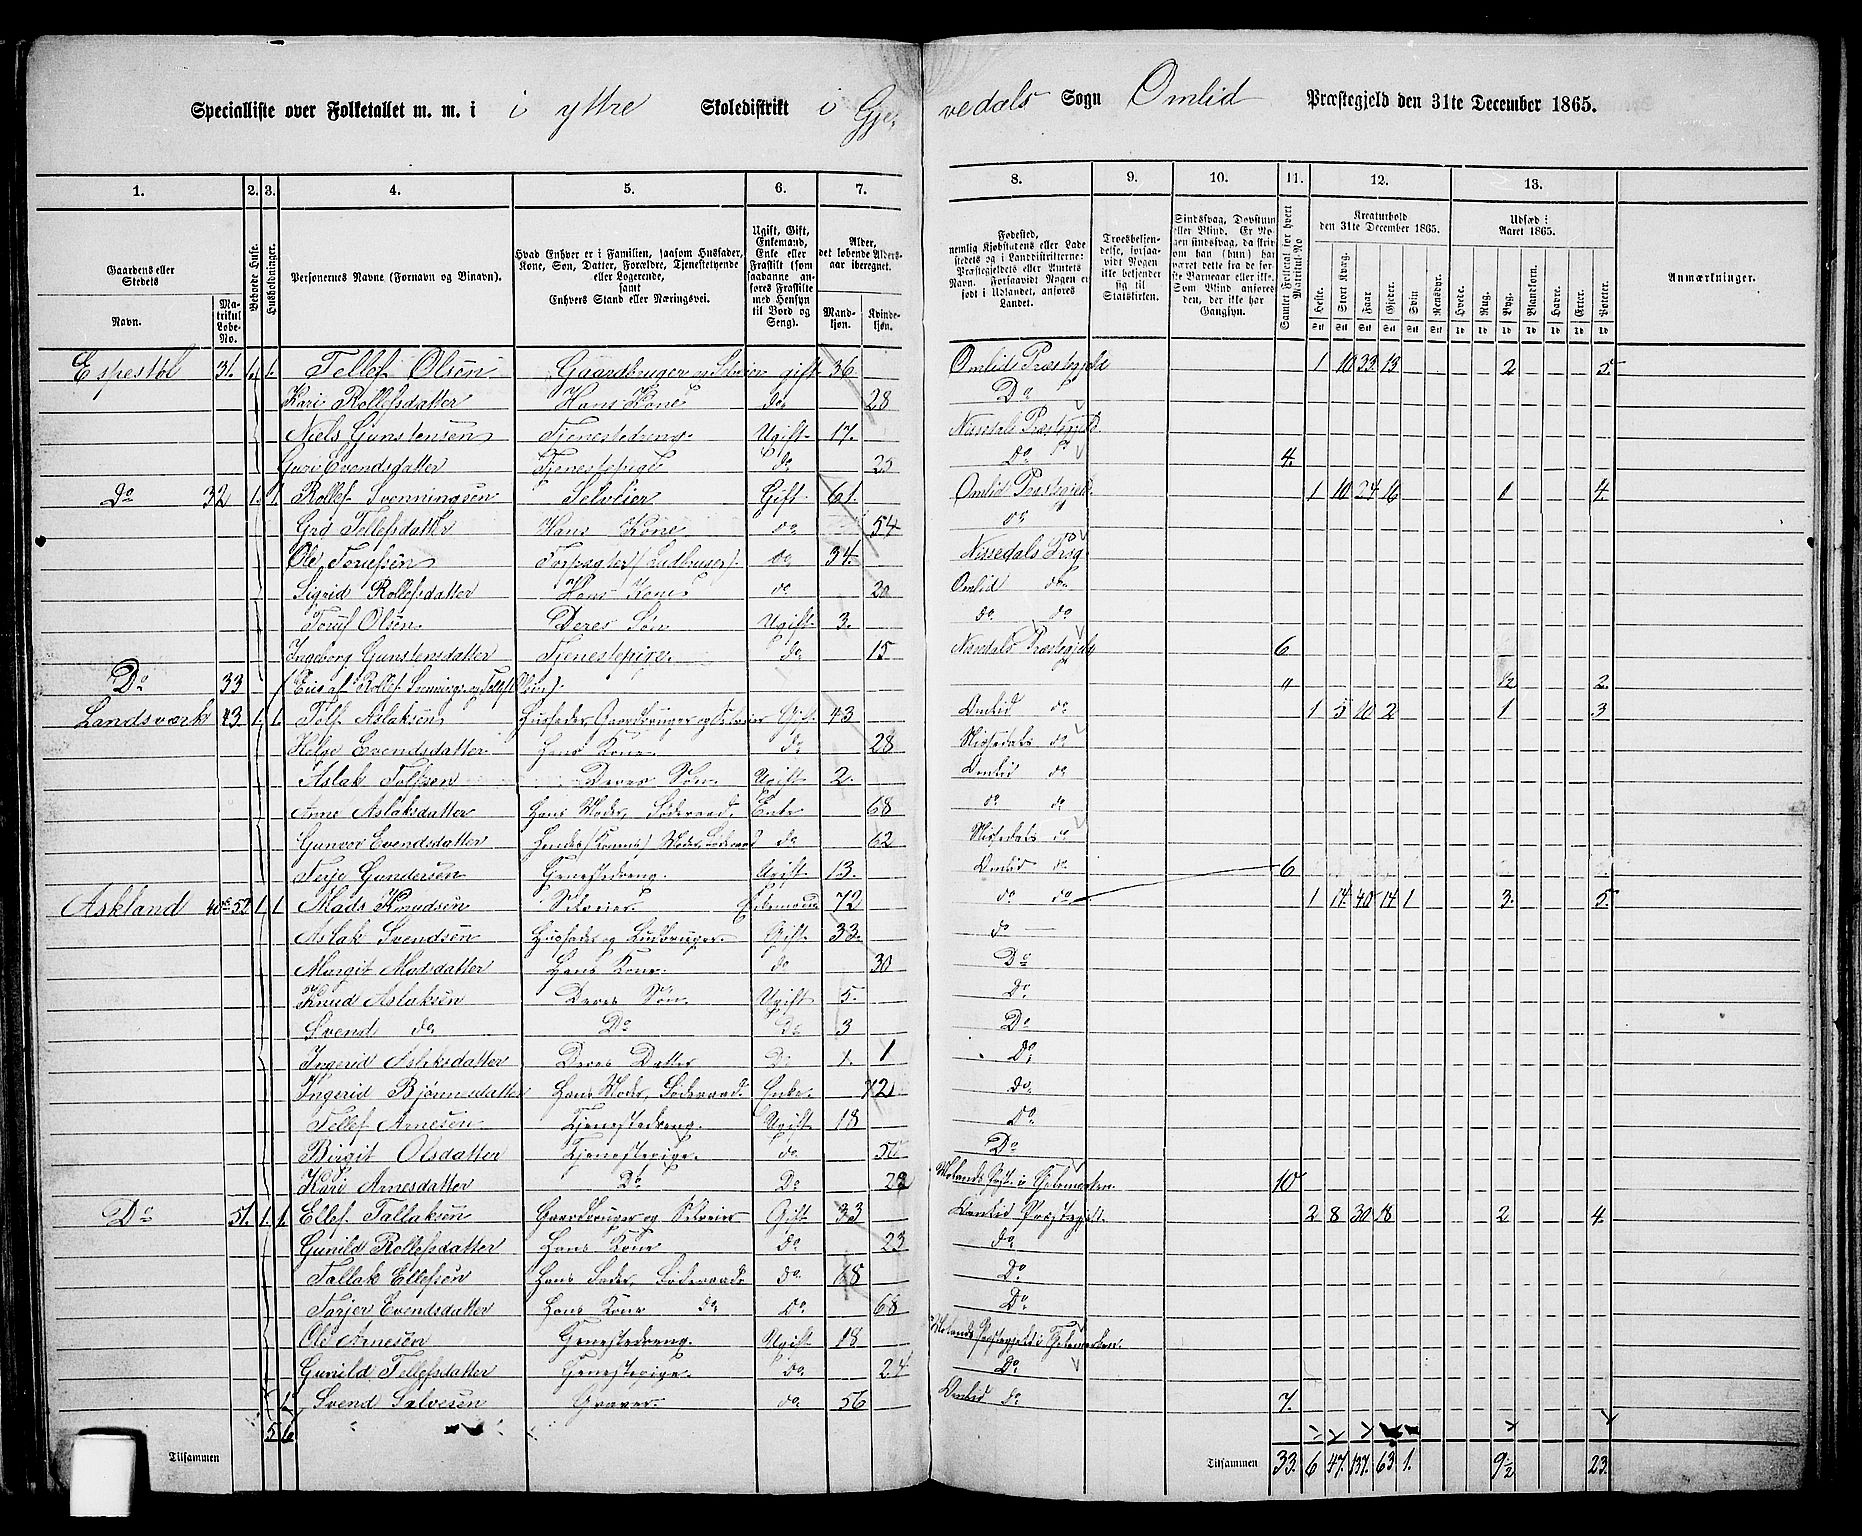 Specialliste over Folketallet m. m. i i yttre Skoledistrikt i Gje-vedals Sogn Omlid Præstegjeld den 31te December 1865.
1. 2. 3. 4. 5. 6. 7. 8. 9. 10. 11. 12. 13.
Gaardens eller Stedets Navn. Matrikul Løbe-No. Beboede Huse. Husholdninger. Personernes Navne (Fornavn og Binavn). Hvad Enhver er i Familien, saasom Husfader, Kone, Søn, Datter, Forældre, Tjenestetyende eller Logerende, samt Enhvers Stand eller Næringsvei. Ugift, Gift, Enkemand, Enke eller Fraskilt (som saadanne anføres Fraskilte med Hensyn til Bord og Seng). Alder, det løbende Aldersaar iberegnet. Mandkjøn. Kvindekjøn.
Fødested, nemlig Kjøbstadens eller Ladestedets eller i Landdistrikterne: Præstegjeldets eller Amtets Navn. Forsaavidt Nogen er født i Udlandet, anføres Landet. Troesbekjendelse, forsaavidt Nogen ikke bekjender sig til Statskirken. Sindssvag, Døvstum eller Blind. Samlet Folketal for hvert Matrikul-No Kreaturhold den 31te December 1865. Udsæd i Aaret 1865. Anmærkninger.
Heste. Stort Kvæg. Faar. Gjeder. Svin. Rensdyr. Hvede. Rug. Byg. Blandkorn. Havre. Erter. Poteter.
Espestøl 31. 1. 1. Tellef Olsen Gaardbruger og Selveier gift 36 Omlids Præstegjeld 1 10 23 13 2 5.
Kari Rollefsdatter Hans Kone do 28 Do
Niels Gunstensen Tjenestedreng. Ugift 17. Nissedals Præstegjeld
Guri Evendsdatter Tjenestepige do 25 Do 4.
Do 32 1. 1. Rollef Svenningsen Selveier Gift 61. Omlids Præstegjeld 1 10 24 16 1 4.
Gro Tellefsdatter Hans Kone do 54 do
Ole Torjufsen Forpagter (Ludbruger). do 34. Nissedals Præg
Sigrid Rollefsdatter Hans Kone do 20 Omlid do
Toruf Olsen Deres Søn Ugift 3. do do
Ingeborg Gunstensdatter Tjenestepige. do 15 Nissedals Præstegjeld 6
Do 33 (Eies af Rollef Svennings. og Tellef Olsen). " 1/2 2.
Landsværk 43. 1. 1. Tolf Aslaksen Husfader, Gaardbruger og Selveier Gift 43 Omlid do 1 5 10 2 1 3
Helge Evendsdatter Hans Kone do 28 Nissedals do
Aslak Tolfsen Deres Søn Ugift 2. Omlid do
Anne Aslaksdatter Hans Moder, Føderaad. Enke 68 do do
Gunvor Evendsdatter Hendes (Konens) Moder, Føderaad do 62 Nissedals do
Terje Gundersen Tjenestedreng. Ugift 13. Omlid do 6
Askland 1. 1. Mads Knudsen Selveier Enkemand 72 do do 1 14 40 14 1 3. 5.
Aslak Svendsen Husfader og Ludbruger. Gift 33. do —
Margit Madsdatter Hans Kone do 30 Do
Knud Aslaksen Deres Søn Ugift 5. Do
Svend do Do do 3 Do
Ingerid Aslaksdatter Deres Datter Do 1. 1 Do
Ingerid Bjønnsdatter Hans Moder, Føderaad. Enke 72 Do
Tellef Arnesen Tjenestedreng. Ugift 18 Do
Birgit Olsdatter Tjenestepige. do 50 Do
Kari Arnesdatter Do Do 22 Molands Præst. i Thelemarken. 10
Do 51. 1. 1. Ellef Tallaksen Gaardbruger og Selveier Gift 33 Omlid Præstegjeld 2 8 30 18 2 4.
Gunild Rollefsdatter Hans Kone do 23 do
Tallak Ellefsen Hans Fader, Føderaad do 68 Do
Tarjer Evendsdatter Hans Kone do Do 68 Do
Ole Arnesen Tjenestedreng. Ugift 18 Molands Præstegjeld i Thelemarken.
Gunild Tellefsdatter Tjenestepige. do 24 Do
1. Svend Salvesen Graver. do 56 Omlid do 7.
5 6
Tilsammen Tilsammen 33. 6 47. 137. 63 1. 9 1/2 23.